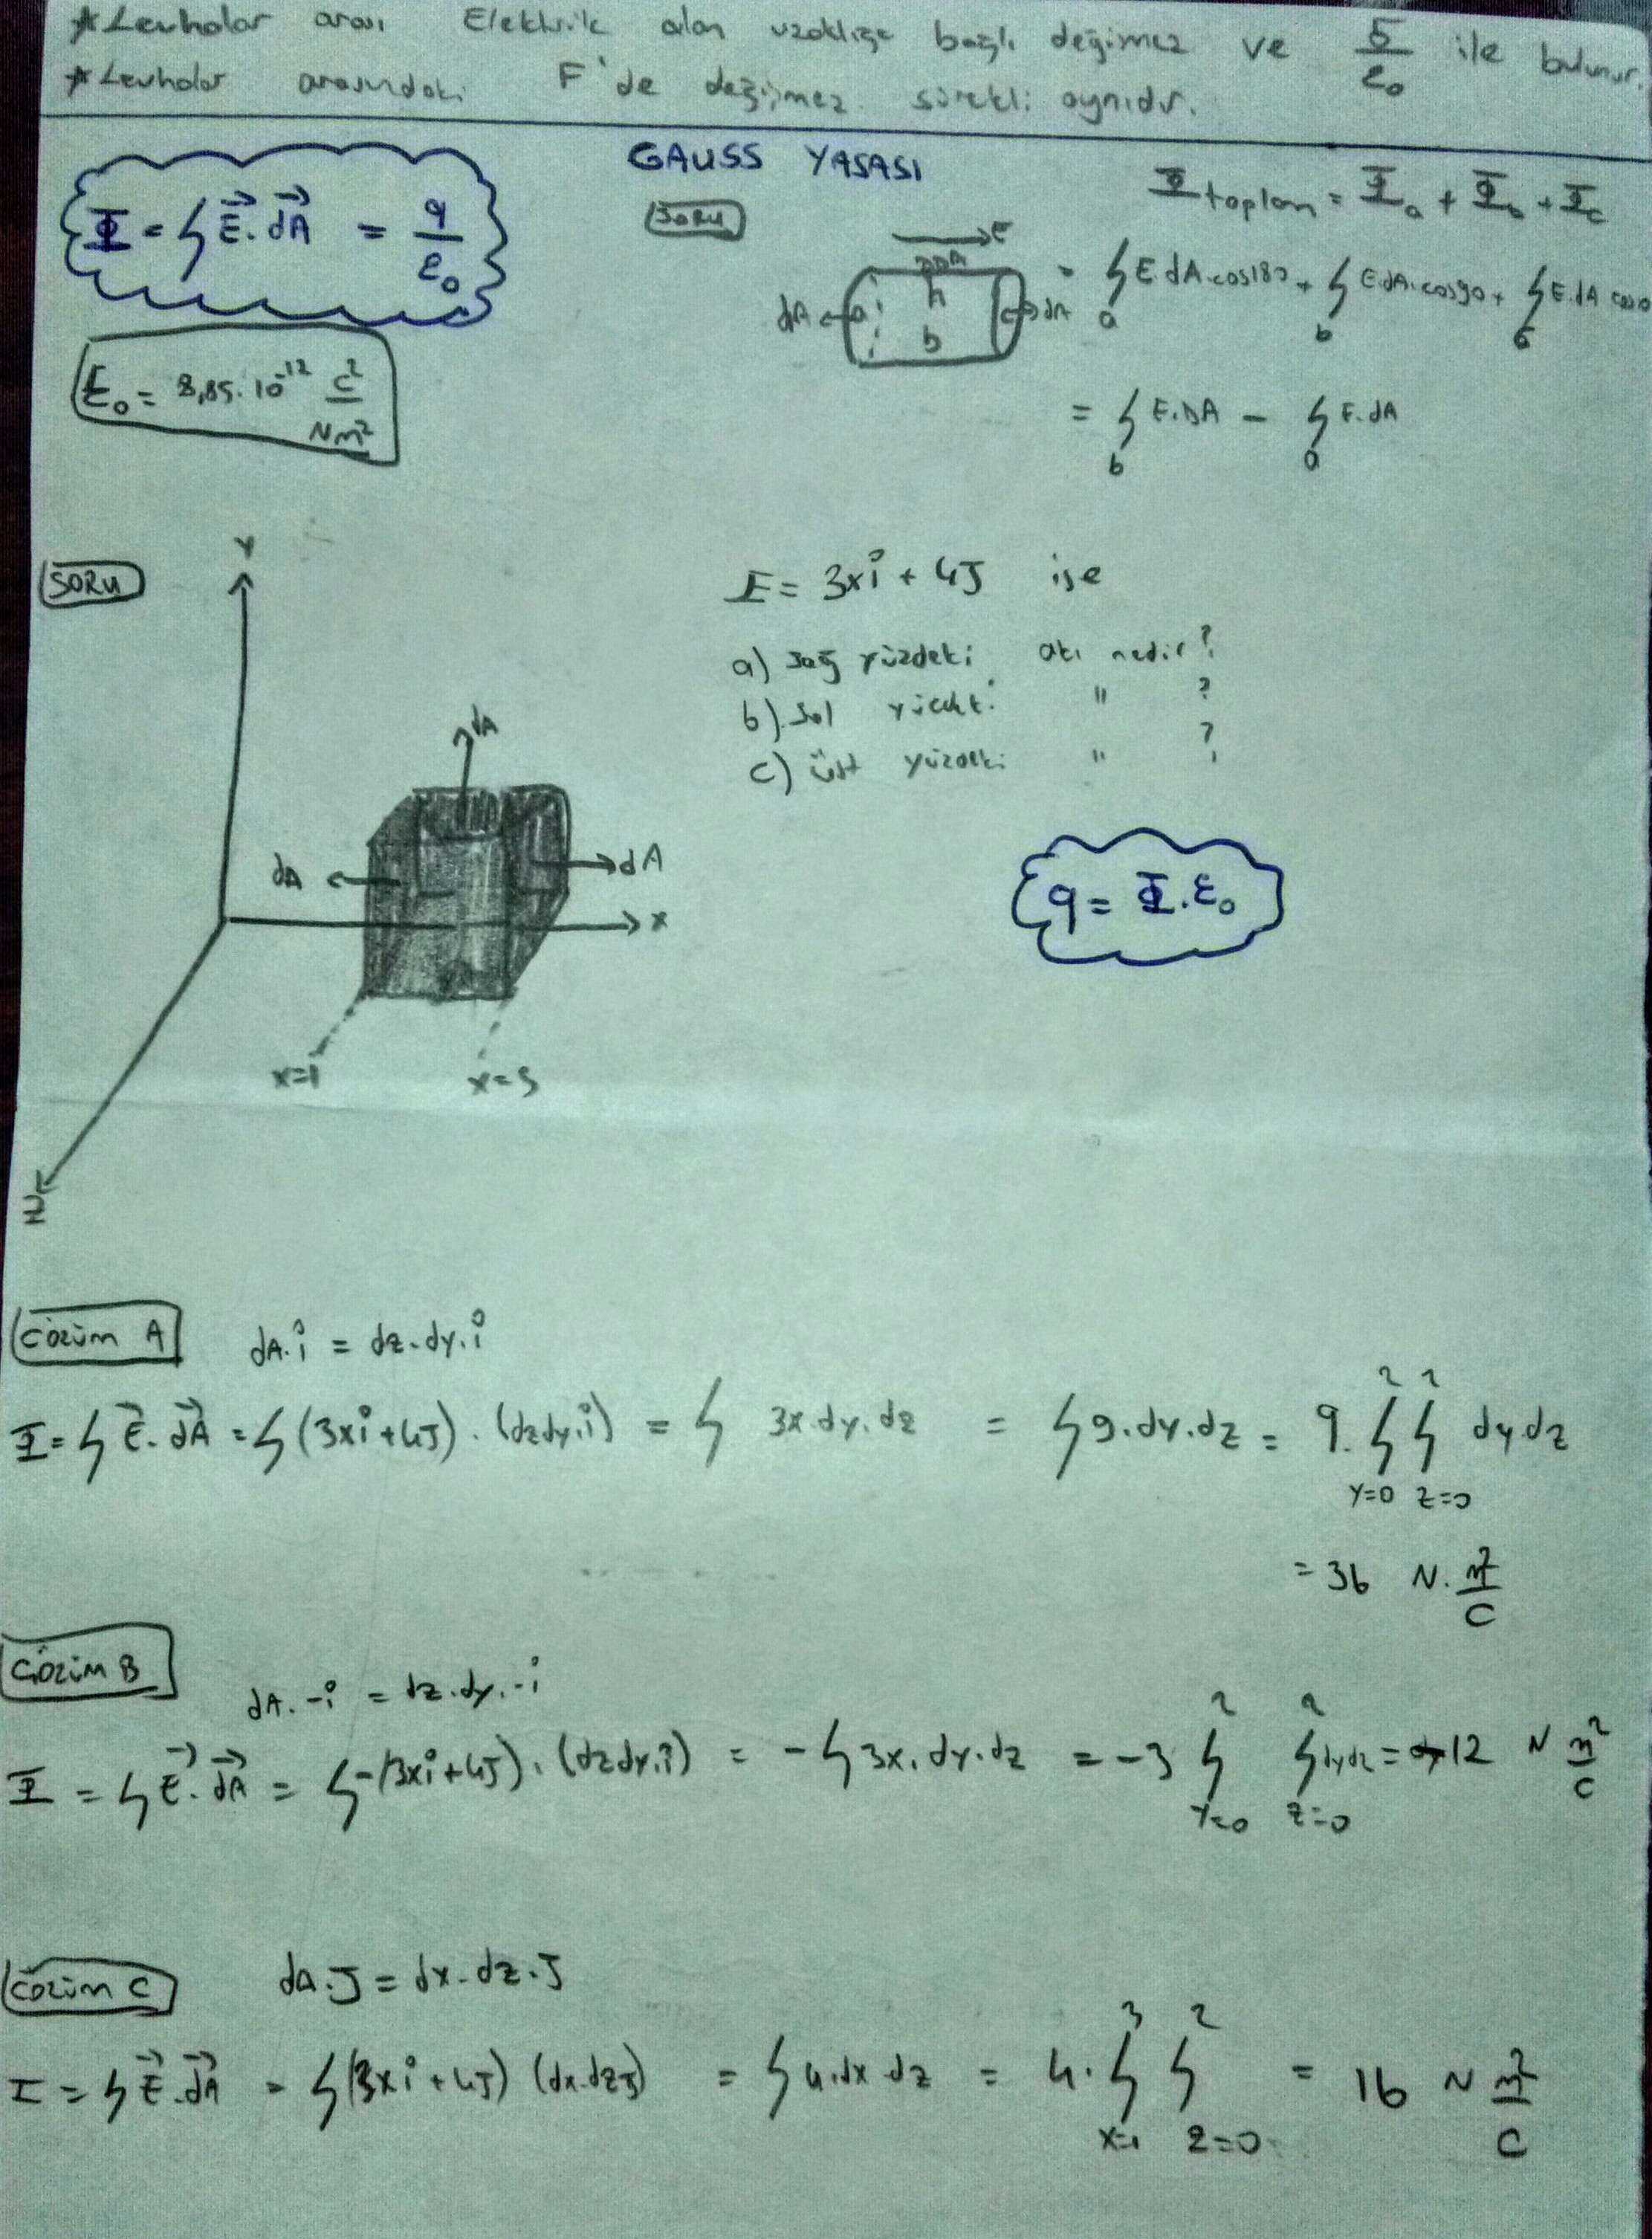 *Levhalar arası Elektrik alan uzaklığa bağlı değişmez ve σ/ε₀ ile bulunur.
*Levhalar arasındaki F'de değişmez. sürekli aynıdır.
GAUSS YASASI
Φ = ∫ E⃗.dA⃗ = q/ε₀
ε₀ = 8,85.10⁻¹² C²/Nm²
SORU
E
dA
dA a h b c dA
Φtoplam = Φa + Φb + Φc
= ∫a E.dA.cos180 + ∫b E.dA.cos90 + ∫c E.dA cos0
= ∫b E.dA - ∫a E.dA
SORU
Y
E = 3xi + 4J ise
a) Sağ yüzdeki akı nedir?
b) Sol yüzdeki " ?
c) üst yüzdeki " ?
dA
dA
dA
x
q = Φ.ε₀
x=1 x=3
Z
Çözüm A
dA.i = dz.dy.i
Φ = ∫ E⃗.dA⃗ = ∫(3xi+4J).(dzdy.i) = ∫ 3x.dy.dz = ∫9.dy.dz = 9.∫²y=0 ∫²z=0 dy.dz
= 36 N.m²/C
Çözüm B
dA.-i = dz.dy.-i
Φ = ∫ E⃗.dA⃗ = ∫-(3xi+4J).(dzdy.i) = -∫3x.dy.dz = -3 ∫²y=0 ∫²z=0 dydz = -12 N m²/C
Çözüm C
dA.J = dx.dz.J
Φ = ∫ E⃗.dA⃗ = ∫(3xi+4J) (dx.dzJ) = ∫4.dx dz = 4.∫³x=1 ∫²z=0 = 16 N m²/C